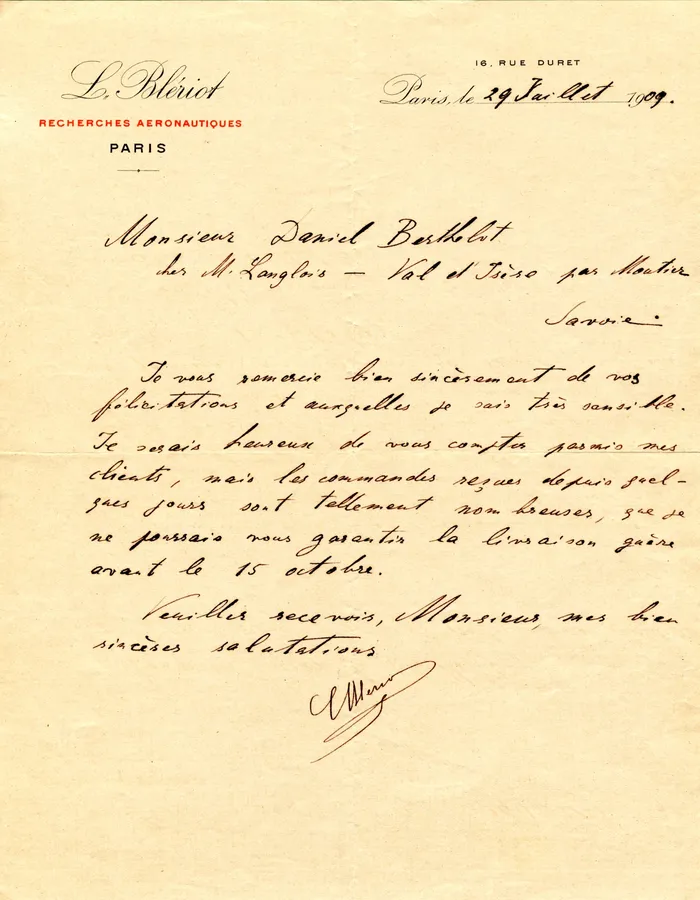 16, RUE DURET
L. Blériot
Paris, le 29 Juillet 1909.
RECHERCHES AERONAUTIQUES
PARIS
Monsieur Daniel Berthelot
chez M. Langlois — Val d'Isère par Moutier
Savoie.
Je vous remercie bien sincèrement de vos
félicitations et auxquelles je suis très sensible.
Je serais heureux de vous compter parmis mes
clients, mais les commandes reçues depuis quel-
ques jours sont tellement nombreuses, que je
ne pourrais vous garantir la livraison guère
avant le 15 octobre.
Veuillez recevoir, Monsieur, mes bien
sincères salutations